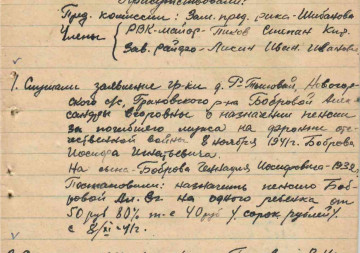 Присутствовали:
Пред. комиссии: Зам. пред. рика - Шибаново
Члены РВК - майор - Пиков Степан Кир.
Зав. райфо - Ликин Иван Иванови
1. Слушали заявление гр-ки д. Р. Тиловой, Новогор-
ского с/с, Грановского р-на Бобровой Алек-
сандры Егоровны о назначении пенсии
за погибшего мужа на фронте оте-
чественной войны 8 ноября 1941 г. Боброва
Иосифа Игнатьевича.
На сына - Боброва Геннадия Иосифовича - 1932
Постановили: назначить пенсию Боб-
ровой Ал. Ег. на одного ребенка от
50 руб 80% т-е 40 руб /. сорок рублей /.
с 8/XI - 41 г.